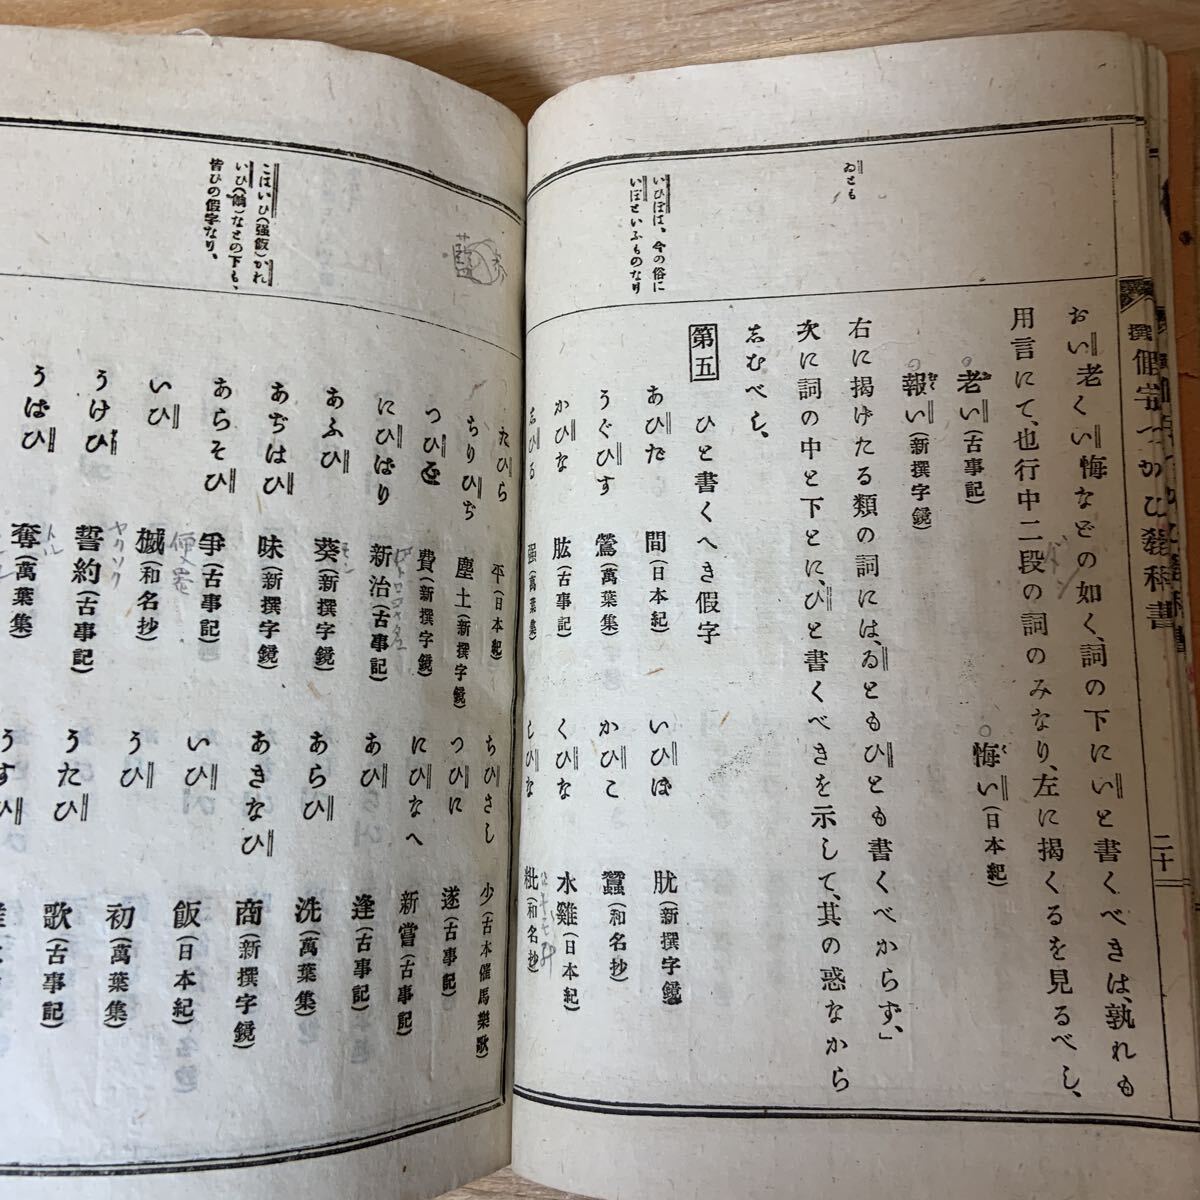 撰假字つかひ教科書
二十
おい老くい悔などの如く、詞の下にいと書くべきは、孰れも
用言にて、也行中二段の詞のみなり、左に揭くるを見るべし、
老い(古事記)
悔い(日本紀)
報い(新撰字鏡)
右に揭げたる類の詞には、ゐともひとも書くべからず、」
次に詞の中と下とに、ひと書くべきを示して、其の惑なから
しむべし、
ゐとも
いひぼは、今の俗に
いぼといふものなり
第五 ひと書くへき假字
あひだ 間(日本紀)
いひぼ 肬(新撰字鏡)
うぐひす 鶯(萬葉集)
かひこ 蠶(和名抄)
かひな 肱(古事記)
くひな 水雞(日本紀)
しひる 强(萬葉集)
しひな 粃(和名抄)
こはいひ(强飯)かれ
いひ(餉)などの下も、
皆ひの假字なり、
たひら 平(日本紀)
ちひさし 少(古本催馬樂歌)
ちりひぢ 塵土(新撰字鏡)
つひに 遂(古事記)
つひゑ 費(新撰字鏡)
にひなへ 新嘗(古事記)
にひばり 新治(古事記)
あひ 逢(古事記)
あふひ 葵(新撰字鏡)
あらひ 洗(萬葉集)
あぢはひ 味(新撰字鏡)
あきなひ 商(新撰字鏡)
あらそひ 爭(古事記)
いひ 飯(日本紀)
いひ 楲(和名抄)
うひ 初(萬葉集)
うけひ 誓約(古事記)
ヤクソク
うたひ 歌(古事記)
うばひ 奪(萬葉集)